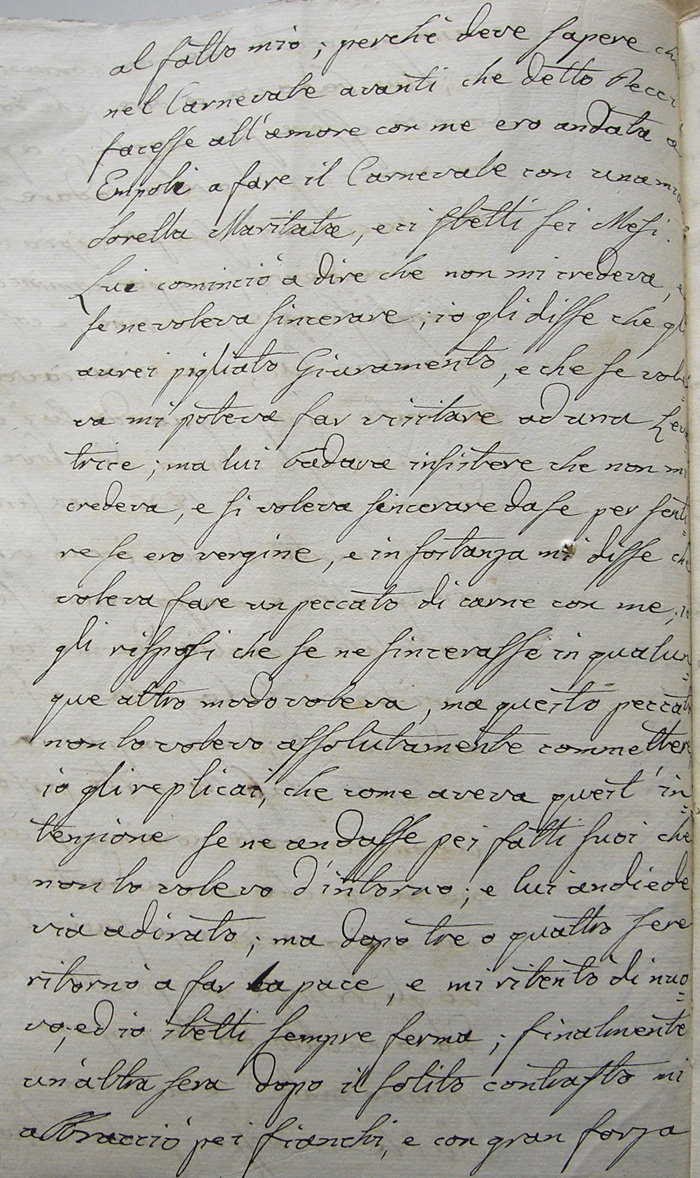 al fatto mio; perchè deve sapere ch
nel Carnevale avanti che detto Becci
facesse all'amore con me ero andata a
Empoli a fare il Carnevale con una mia
Sorella Maritata, e ci stetti sei Mesi.
Lui cominciò a dire che non mi credeva, e
se ne voleva sincerare; io gli disse che gl
aurei pigliato Giuramento, e che se vole=
va mi poteva far visitare ad una Leva
trice; ma lui badava insistere che non mi
credeva, e si voleva sincerare da se per senti=
re se ero vergine, e in sostanza mi disse che
voleva fare un peccato di carne con me; io
gli risposi che se ne sincerasse in qualun=
que altro modo voleva, ma questo peccato
non lo volevo assolutamente commetter
io gli replicai, che come aveva quest'in=
tenzione se ne andasse pei fatti suoi che
non lo volevo d'intorno; e lui andiede
via adirato; ma dopo tre o quattro sere
ritornò a far la pace, e mi ritentò di nuo=
vo, ed io stetti sempre ferma; finalmente
un'altra sera dopo il solito contrasto mi
abbracciò pei fianchi, e con gran forza